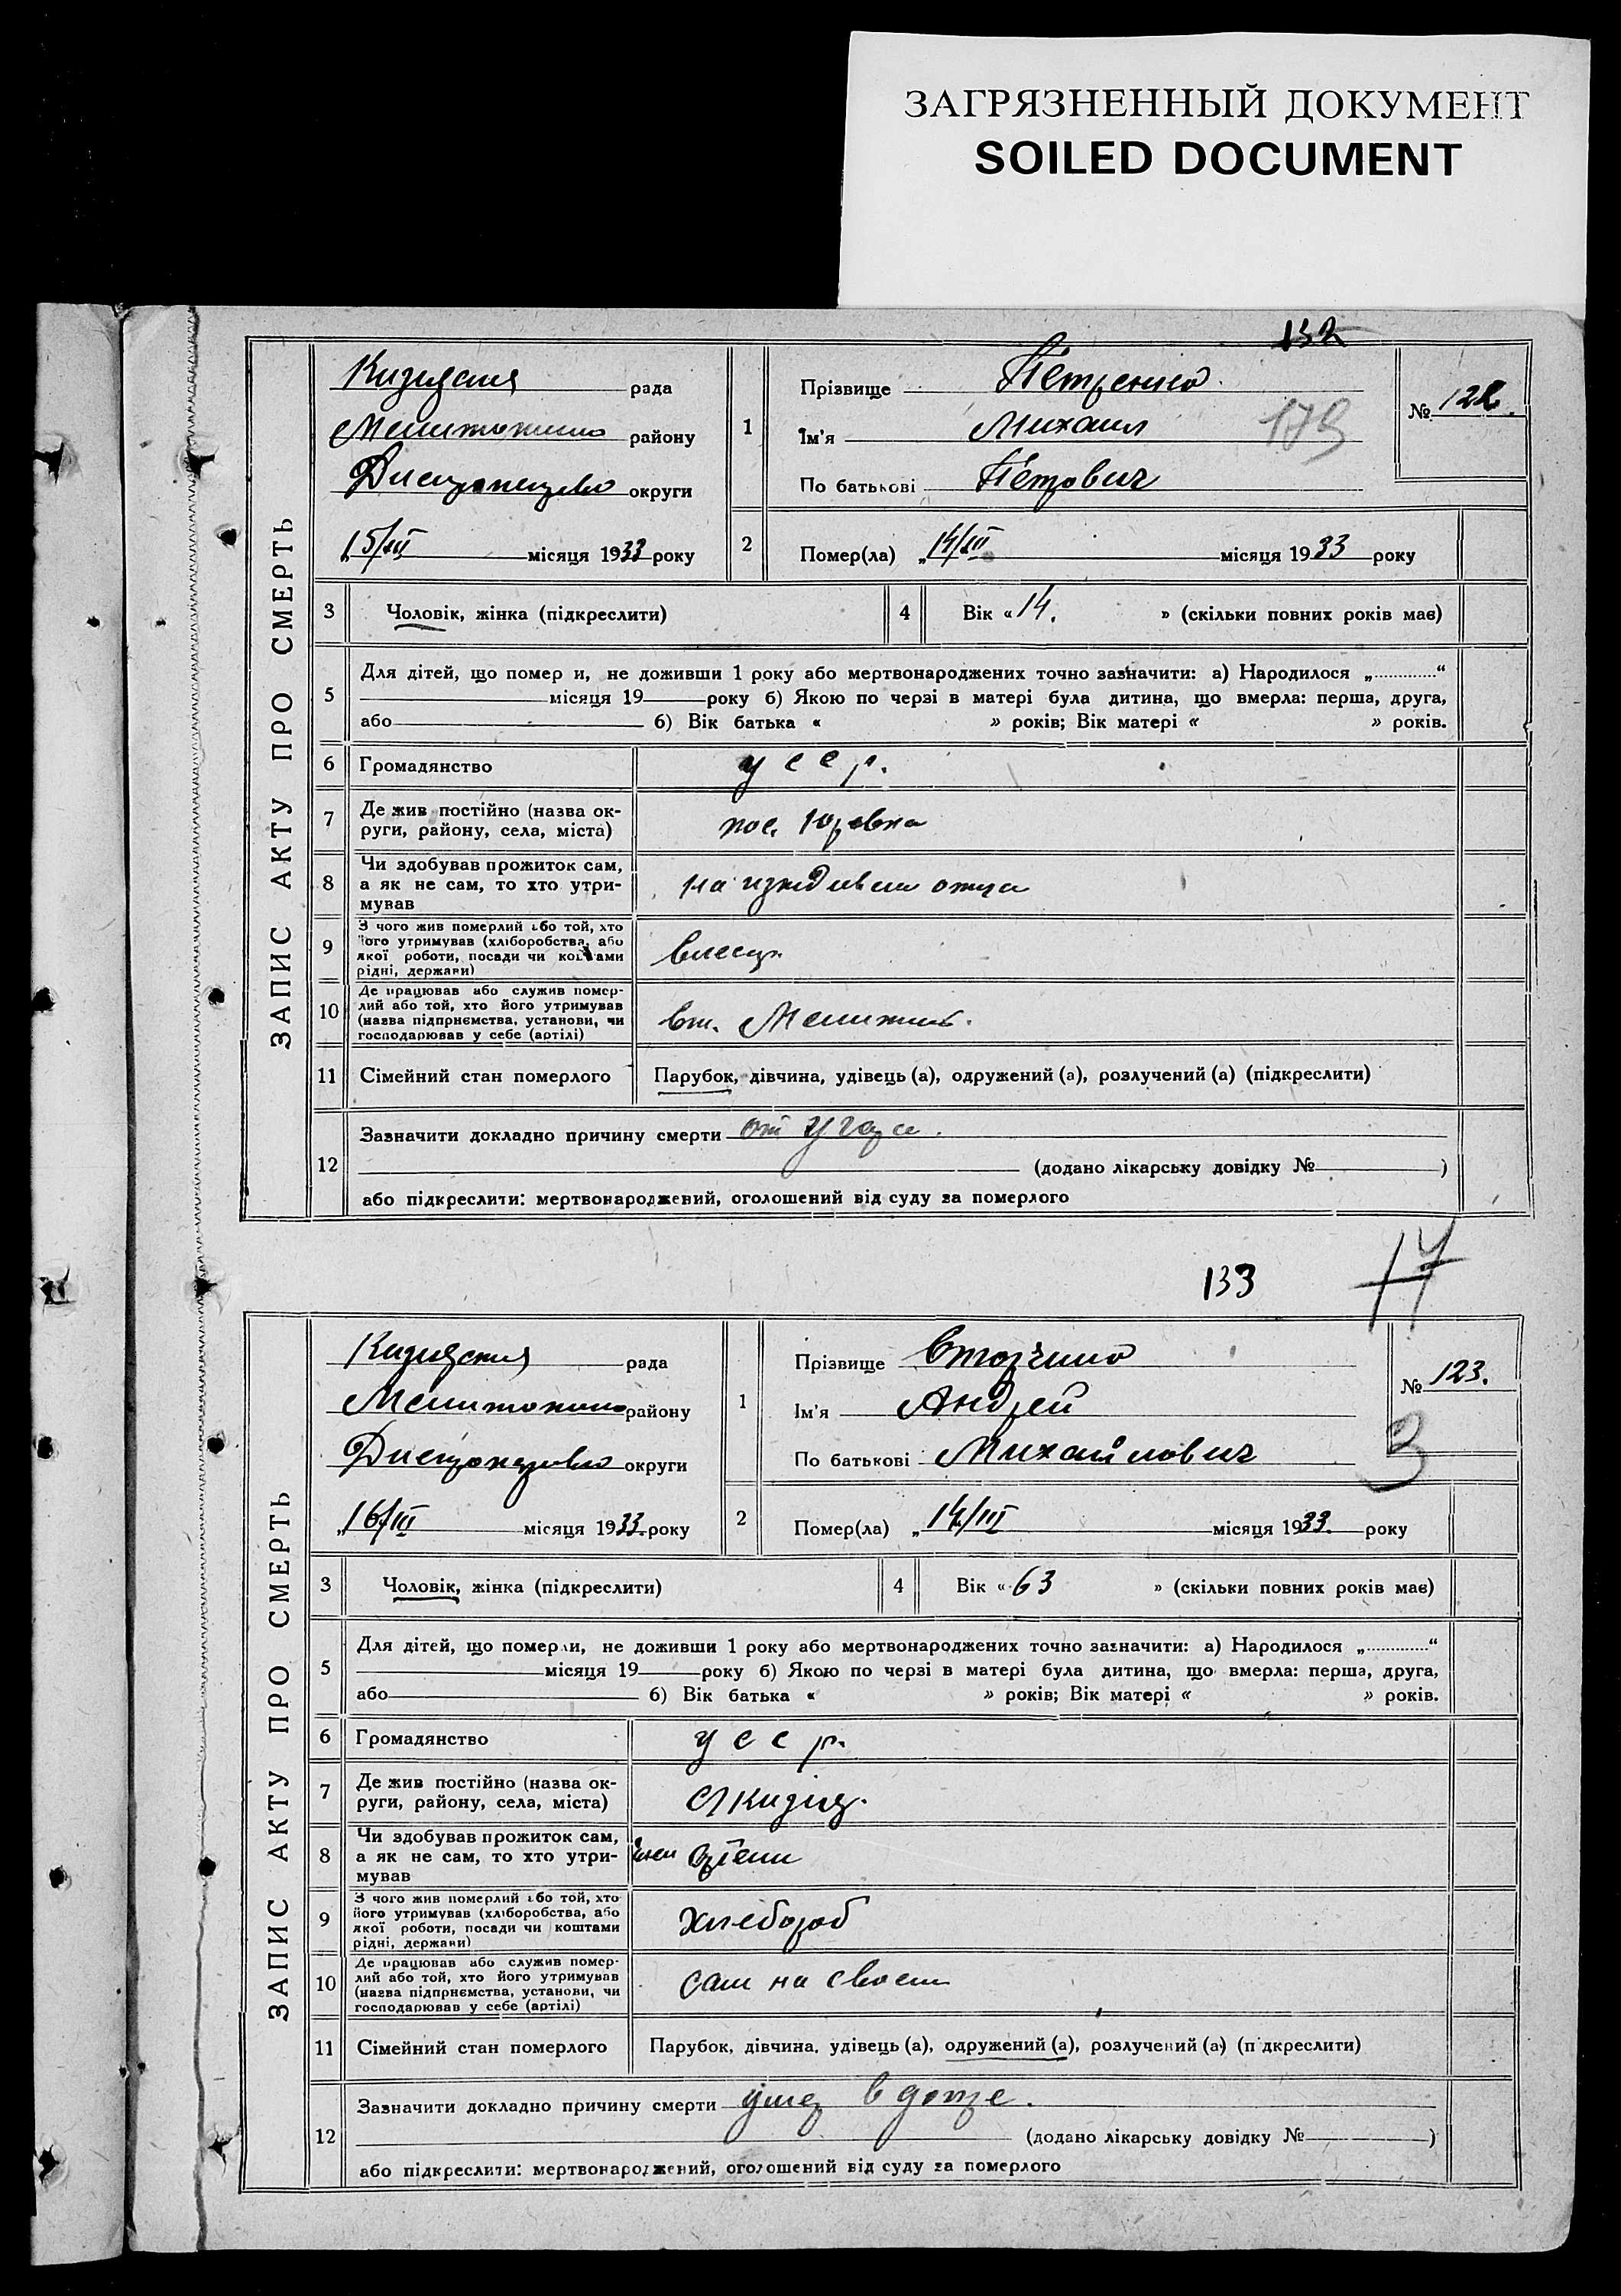 ЗАГРЯЗНЕННЫЙ ДОКУМЕНТ
SOILED DOCUMENT
132
ЗАПИС АКТУ ПРО СМЕРТЬ
рада
району
округи
15/III місяця 1933 року
1
Прізвище Петренко
Ім'я Михаил
По батькові Петрович
№ 122.
2
Помер(ла) „14/III місяця 1933 року
3 Чоловік, жінка (підкреслити)
4 Вік «14. » (скільки повних років має)
5 Для дітей, що помер и, не доживши 1 року або мертвонароджених точно зазначити: а) Народилося „ “
місяця 19 року б) Якою по черзі в матері була дитина, що вмерла: перша, друга,
або б) Вік батька « » років; Вік матері « » років.
6 Громадянство усср.
7 Де жив постійно (назва ок-
руги, району, села, міста)
пос. Юревка
8 Чи здобував прожиток сам,
а як не сам, то хто утри-
мував
на иждивении отца
9 З чого жив померлий або той, хто
його утримував (хліборобства, або
якої роботи, посади чи коштами
рідні, держави)
10 Де працював або служив помер-
лий або той, хто його утримував
(назва підприємства, установи, чи
господарював у себе (артілі)
11 Сімейний стан померлого Парубок, дівчина, удівець (а), одружений (а), розлучений (а) (підкреслити)
12 Зазначити докладно причину смерти от угара.
(додано лікарську довідку № )
або підкреслити: мертвонароджений, оголошений від суду за померлого
133
17
ЗАПИС АКТУ ПРО СМЕРТЬ
рада
району
округи
„16/III місяця 1933. року
1
Прізвище
Ім'я Андрей
По батькові Михайлович
№ 123.
3
2
Помер(ла) „14/III місяця 1933. року
3 Чоловік, жінка (підкреслити)
4 Вік «63 » (скільки повних років має)
5 Для дітей, що померли, не доживши 1 року або мертвонароджених точно зазначити: а) Народилося „ “
місяця 19 року б) Якою по черзі в матері була дитина, що вмерла: перша, друга,
або б) Вік батька « » років; Вік матері « » років.
6 Громадянство усср.
7 Де жив постійно (назва ок-
руги, району, села, міста)
8 Чи здобував прожиток сам,
а як не сам, то хто утри-
мував
9 З чого жив померлий або той, хто
його утримував (хліборобства, або
якої роботи, посади чи коштами
рідні, держави)
Хлебороб
10 Де працював або служив помер-
лий або той, хто його утримував
(назва підприємства, установи, чи
господарював у себе (артілі)
сам на своем
11 Сімейний стан померлого Парубок, дівчина, удівець (а), одружений (а), розлучений (а) (підкреслити)
12 Зазначити докладно причину смерти
(додано лікарську довідку № )
або підкреслити: мертвонароджений, оголошений від суду за померлого